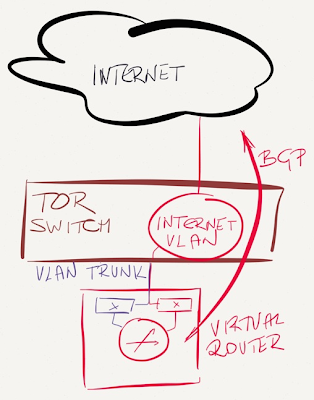 INTERNET
BGP
TOR
SWITCH
INTERNET
VLAN
VLAN TRUNK
X
X
VIRTUAL
ROUTER